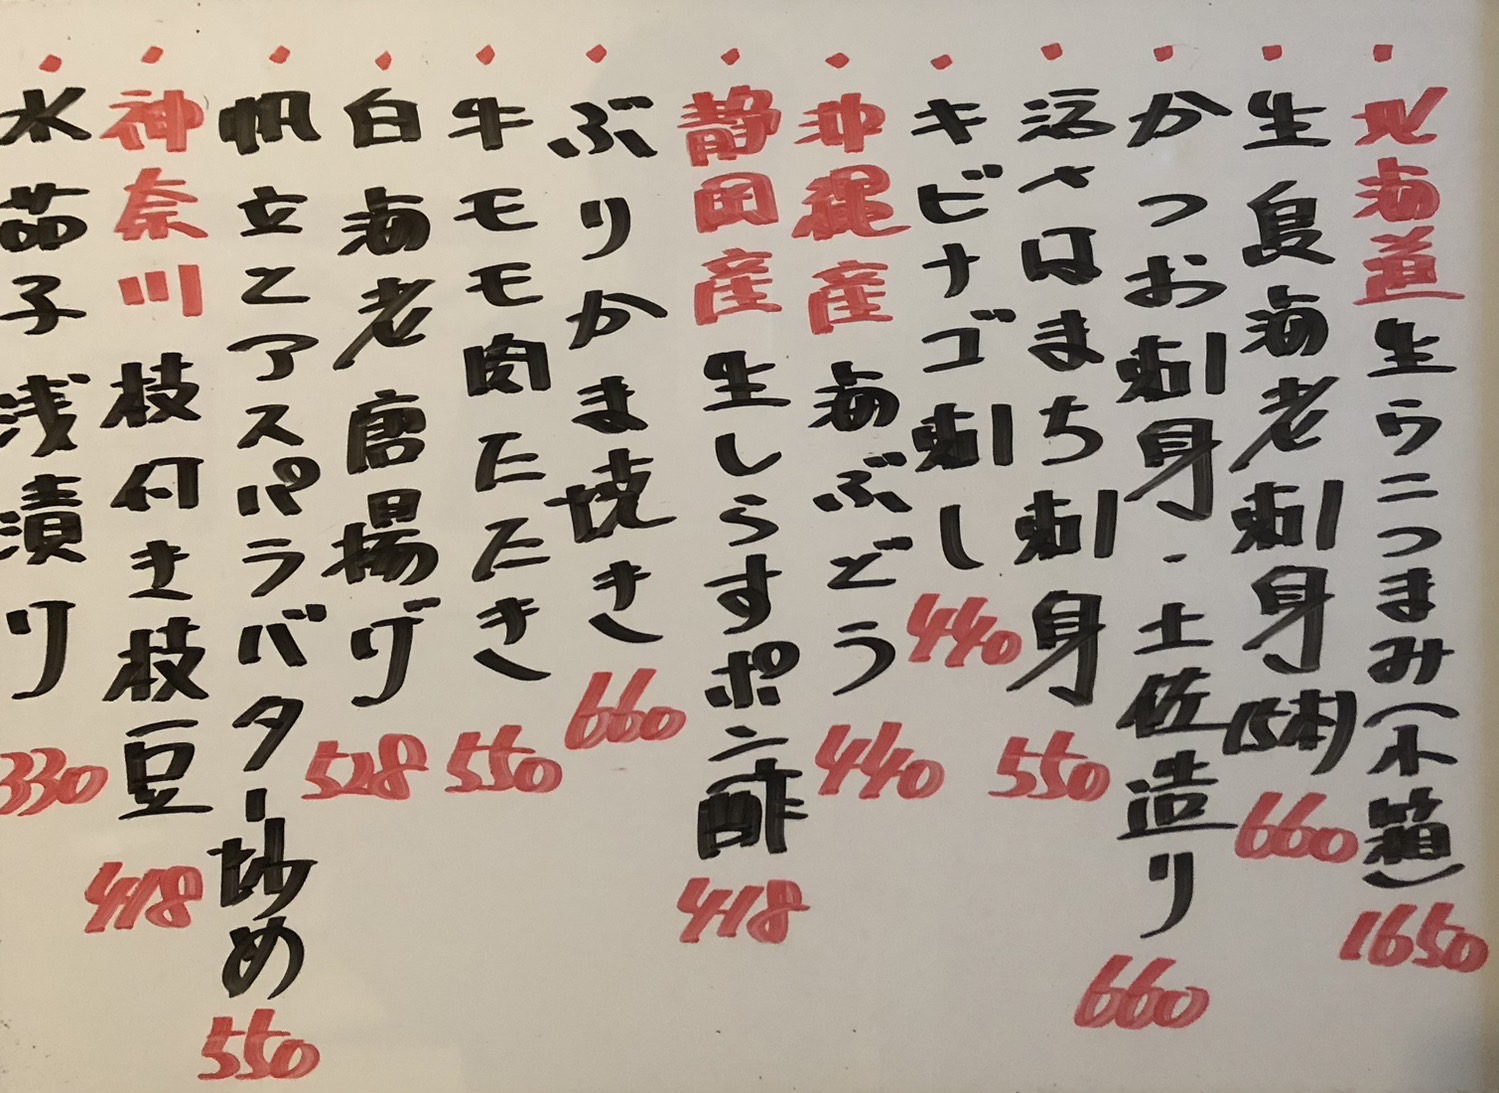 北海道生ウニつまみ(小箱) 1650
生島海老刺身(5本) 660
かつお刺身・土佐造り 660
活〆はまち刺身 550
キビナゴ刺し 440
沖縄産海ぶどう 440
静岡産生しらすポン酢 418
ぶりかま焼き 660
牛モモ肉たたき 550
白海老唐揚げ 528
帆立とアスパラバター炒め 550
神奈川枝付き枝豆 418
水茄子浅漬り 330